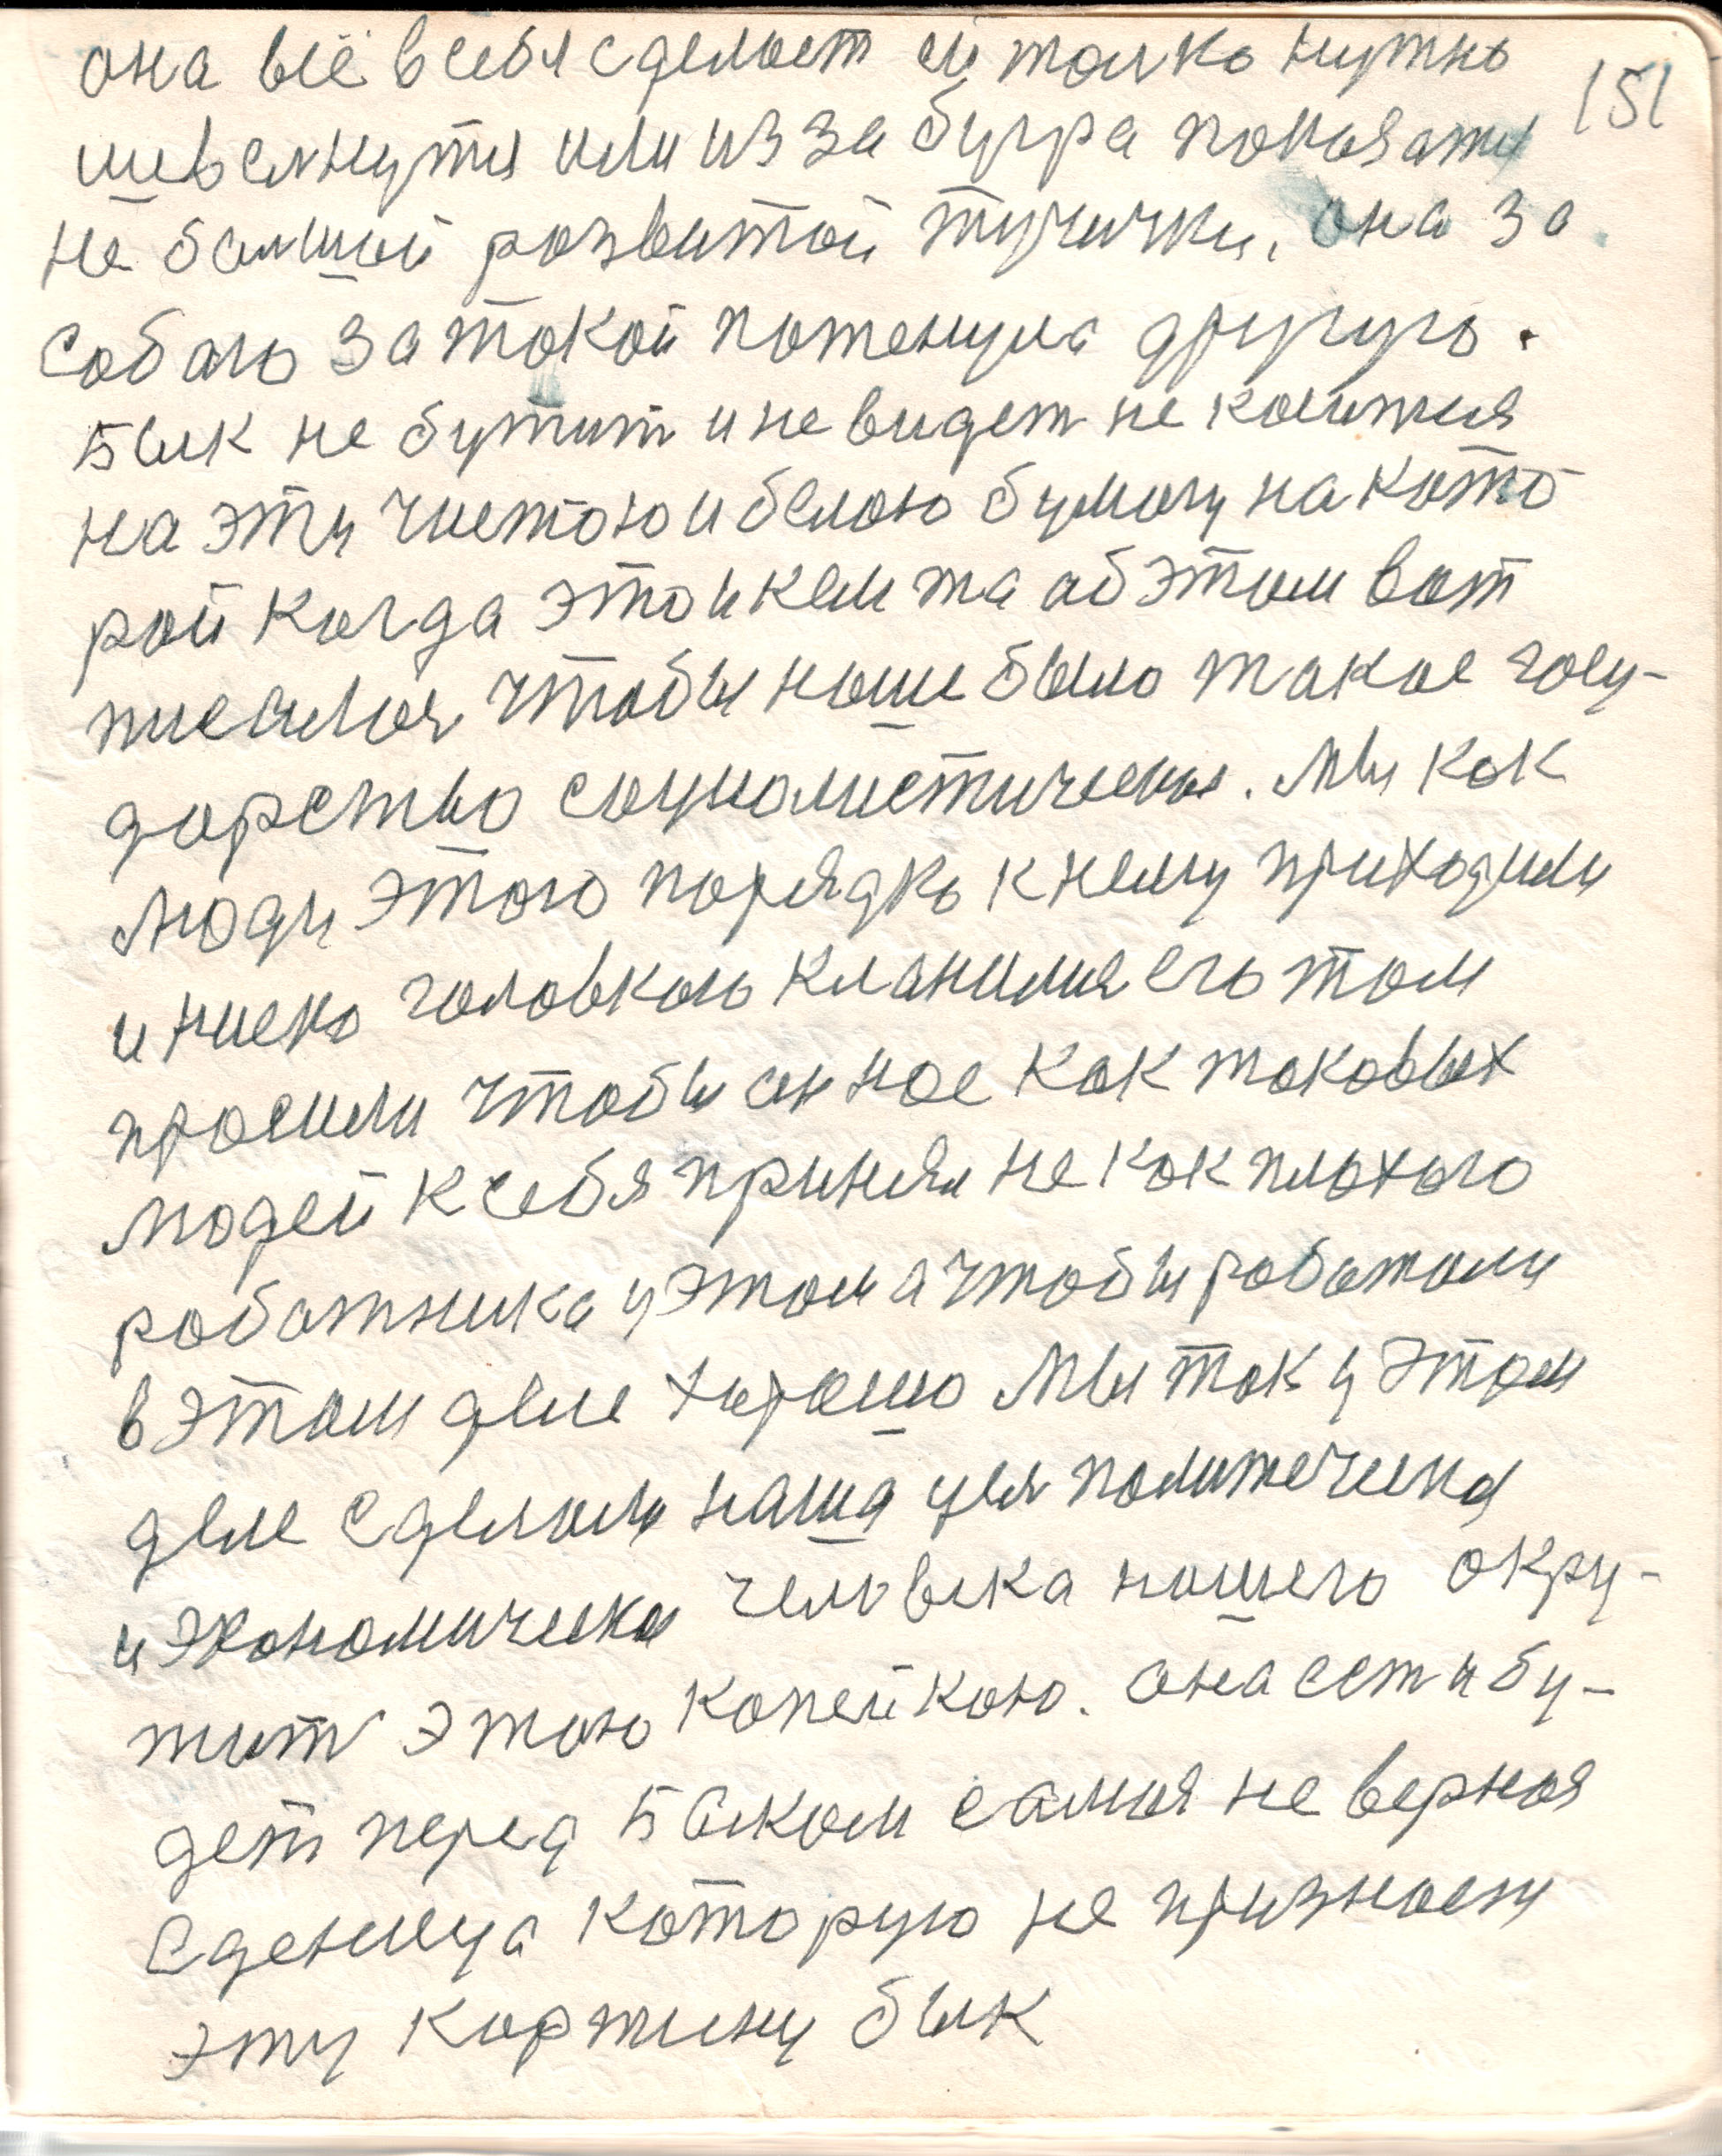 она всё в себя сделает ей только нужно
151
шевелнутся или из за бугра показатся
не большой розвитой тучички, она за
собаю за токой потенула другую.
Бык не бутит и не видет не коситися
на эту чистою и белою бумагу на кото
рой когда это и кем та об этом вот
писалося чтобы наше было такое госу-
дарство социалистическое. Мы как
люди этого порядка к нему приходили
и ниско головкою кланилися его том
просили чтобы он нас как таковых
людей к себя принял не как плохого
работника у этом а чтобы работали
в этом деле хорошо Мы так у этом
деле сделали наша уся политеческа
и экономическая человека нашего окру-
жит этою копейкою. она есть и бу-
дет перед Быком самая не верная
еденица которую не признаеть
эту картину бык